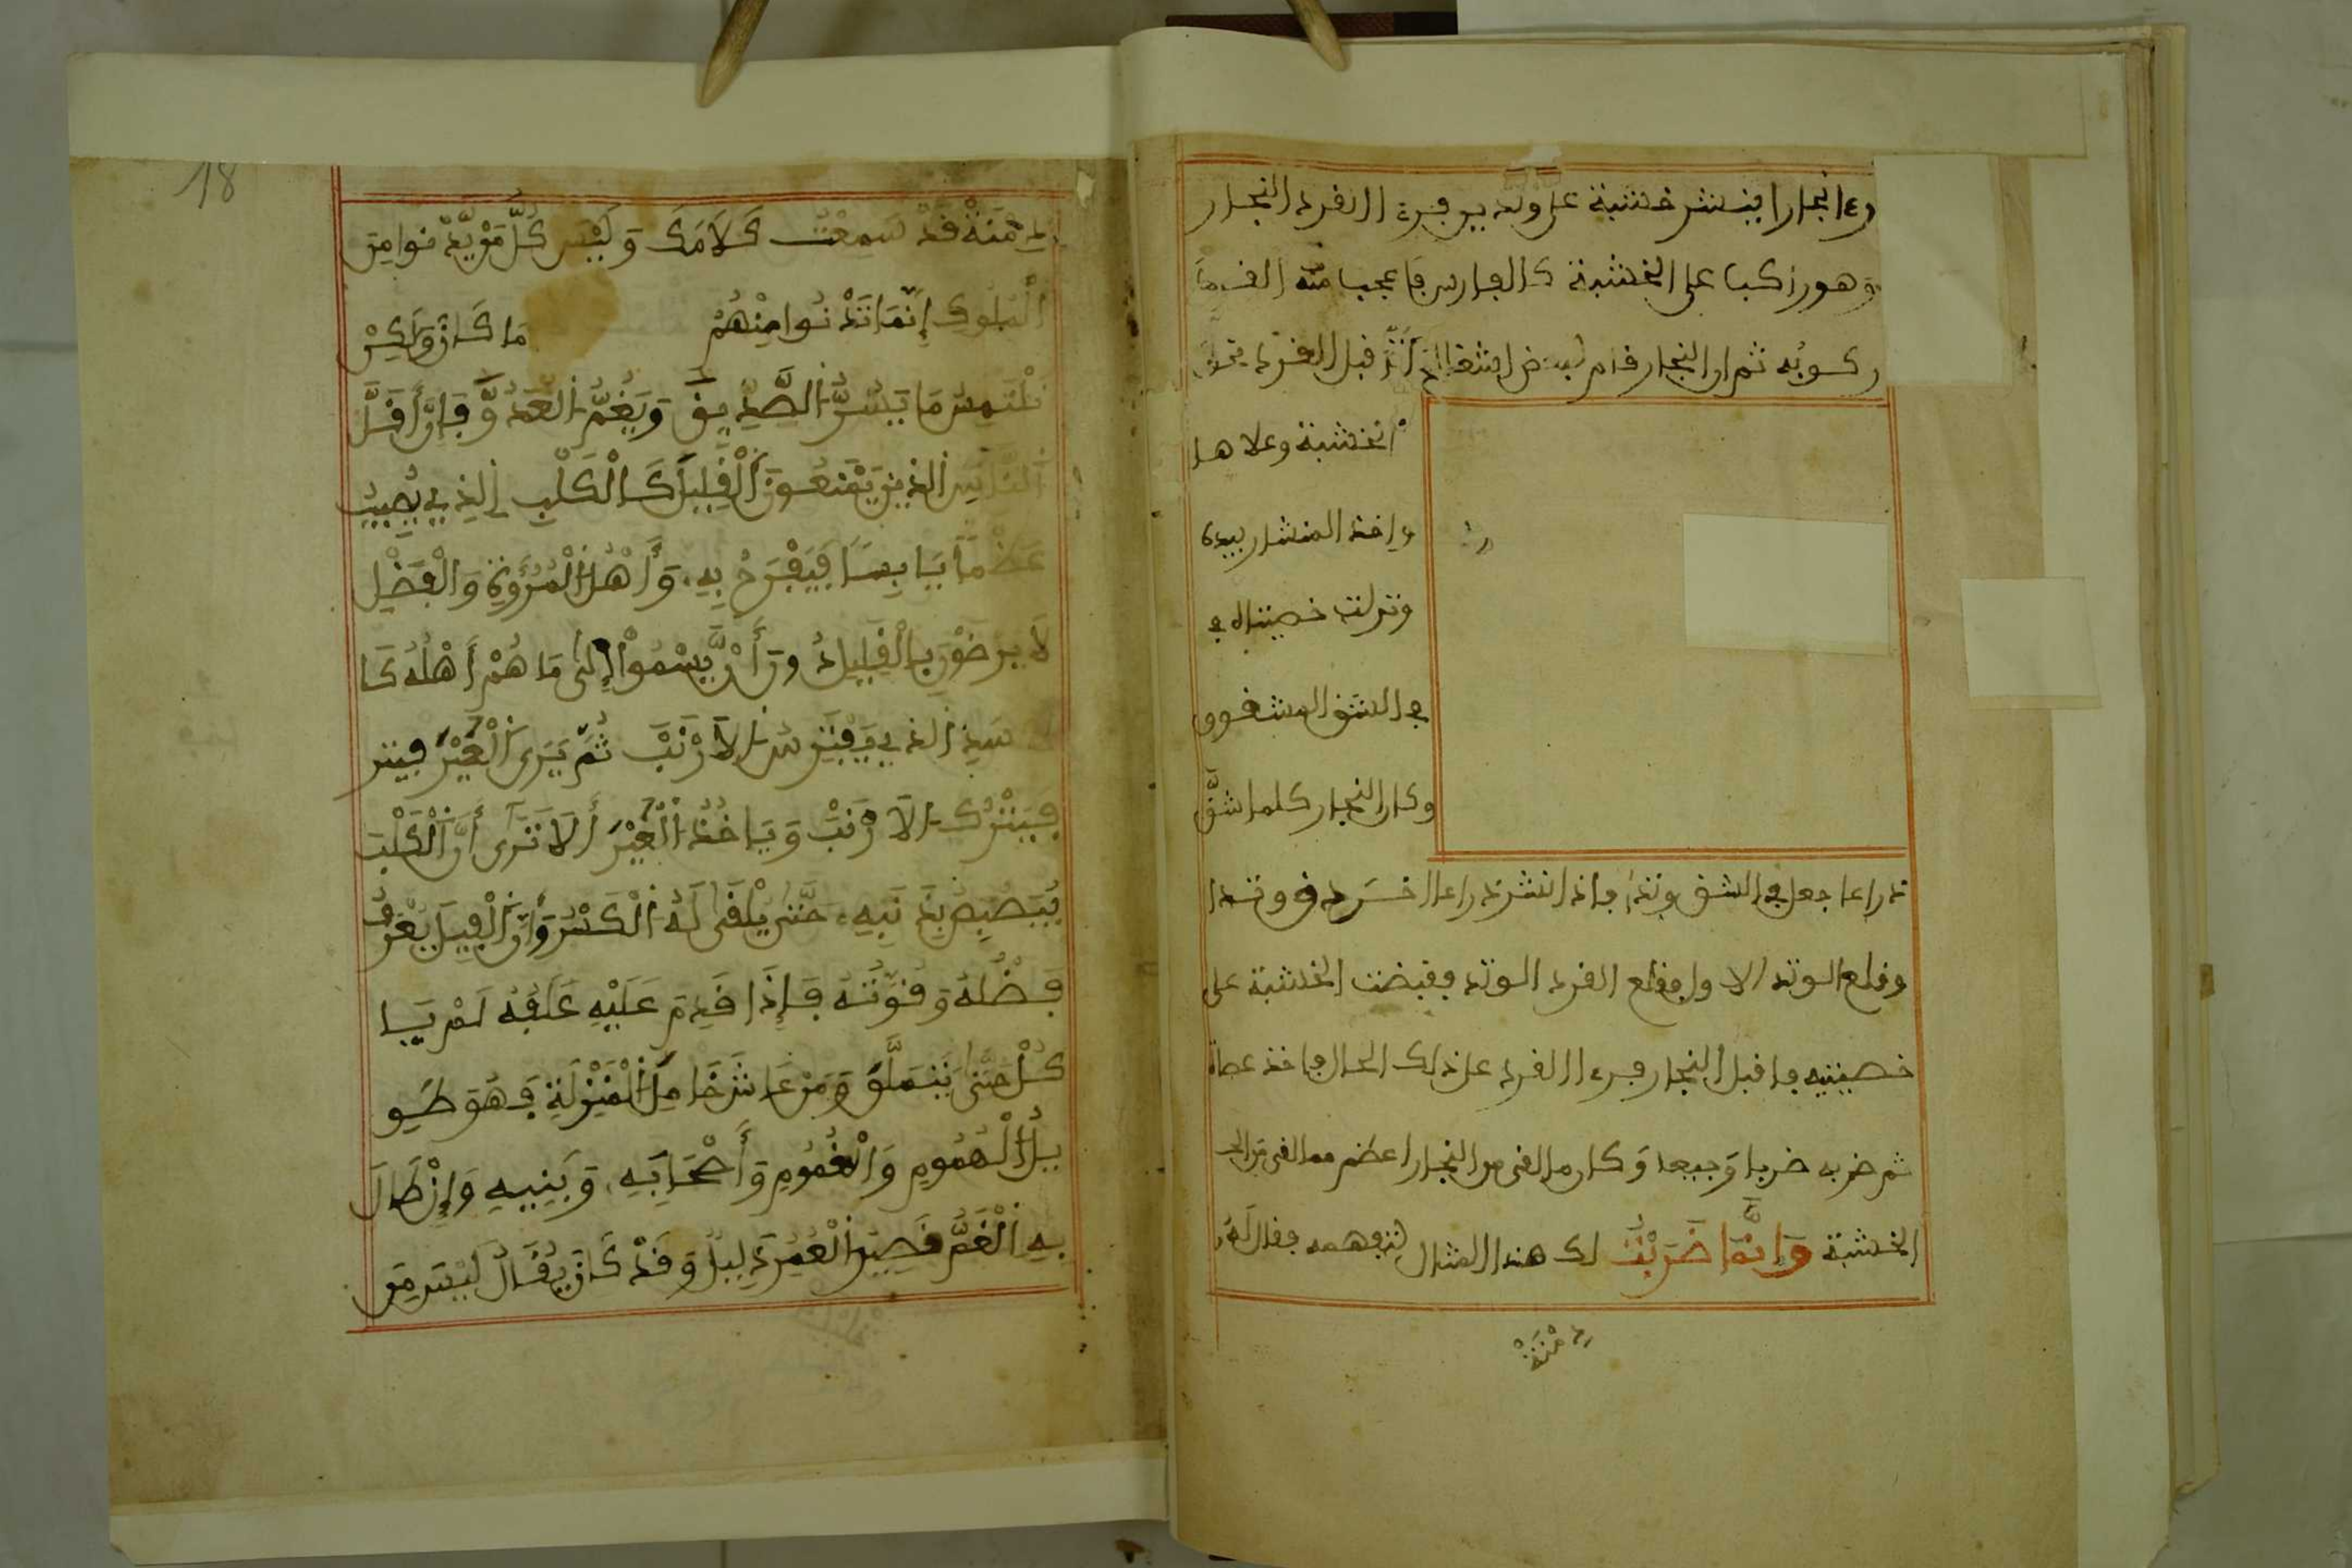 نجارا ينشر خشبة على وتدين فرءا القرد النجار
وهو راكبا على الخشبة كالفارس فاعجبا منه القرد
ركوبه ثم ان النجار قام لبعض اشغاله فاقبل القرد
الخشبة وعلاها
واخذ المنشار بيده
وتدلت خصيتاه في
في الشق المشقوق
وكان النجار كلما شقَّ
ذراعا جعل في الشق وتدا فاذا نشر ذراعا اخر دق وتدا
وقلع الوتد الاول فقلع القرد الوتد فقبضت الخشبة على
خصيتيه فاقبل النجار فرءا القرد على ذلك الحال فاخذ عصاة
ثم ضربه ضربا وجيعا وكان ما لقى من النجار اعظم مما لقى من
الخشبة وَإِنَّمَا ضَرَبْتُ لك هذا المثال لتفهمه فقال لَهُ
دِمْنَةْ
18
دِمْنَةْ قَدْ سَمِعْتُ كَلَامَكَ وَلَيْسَ كُلُّ مَنْ يَدْنوا مِنَ
الْمُلُوكِ إِنَّمَا تَدْنُوا مِنْهُمْ مَا كَانَ وَلَكِنْ
نَلْتَمِسُ مَا يَسُرُّ الصَّدِيقَ وَيَغُمُّ الْعَدُوَّ فَإِنَّ أَقَلَّ
النَّاسِ الذِينَ يَقْنَعُونَ الْقَلِيلَ كَالْكَلْبِ الذِي يُصِيبُ
عَظْمًا يَابِسًا فَيَفْرَحُ بِهِ وَأَهْلُ الْمُرُوَّةِ وَالْفَضْلِ
لَا يَرْضَوْنَ بِالْقَلِيلِ دُونَ أَنْ يَسْمُواْ إِلَى مَا هُمْ أَهْلُهُ كَا
لاَسَدِ الذِي يَفْتَرِسُ الأَرْنَبَ ثُمَّ يَرَى الْعَيْرَ فيتر
فَيَتْرُك الأَرْنَبَ وَيَاخُذُ الْعَيْرَ أَلَا تَرَى أَنَّ الْكَلْبَ
يُبَصْبِصُ بِذَنَبِهِ حَتَّى يُلْقَى لَهُ الْكَسْرُ وَأَنَّ الْفِيلَ يَعْرَفُ
فَضْلَهُ وَقُوَّتَهُ فَإِذَا قَدِمَ عَلَيْهِ عَلَفُهُ لَمْ يَا
كُلْ حَتَّى يَتَمَلَّقَ وَمَنْ عَاشَ خَامِلَ الْمَنْزِلَةِ فَهُوَ طَوِ
يلُ الْهُمُومِ وَالْغُمُومِ وَأَصْحَابِهِ وَبَنِيهِ وَإِنْ طَالَ
بِهِ الْغَمُّ قَصِيرُ الْعُمْرِ ذَلِيلٌ وَقَدْ كَانَ يُقَالُ لَيْسَ مِنَ